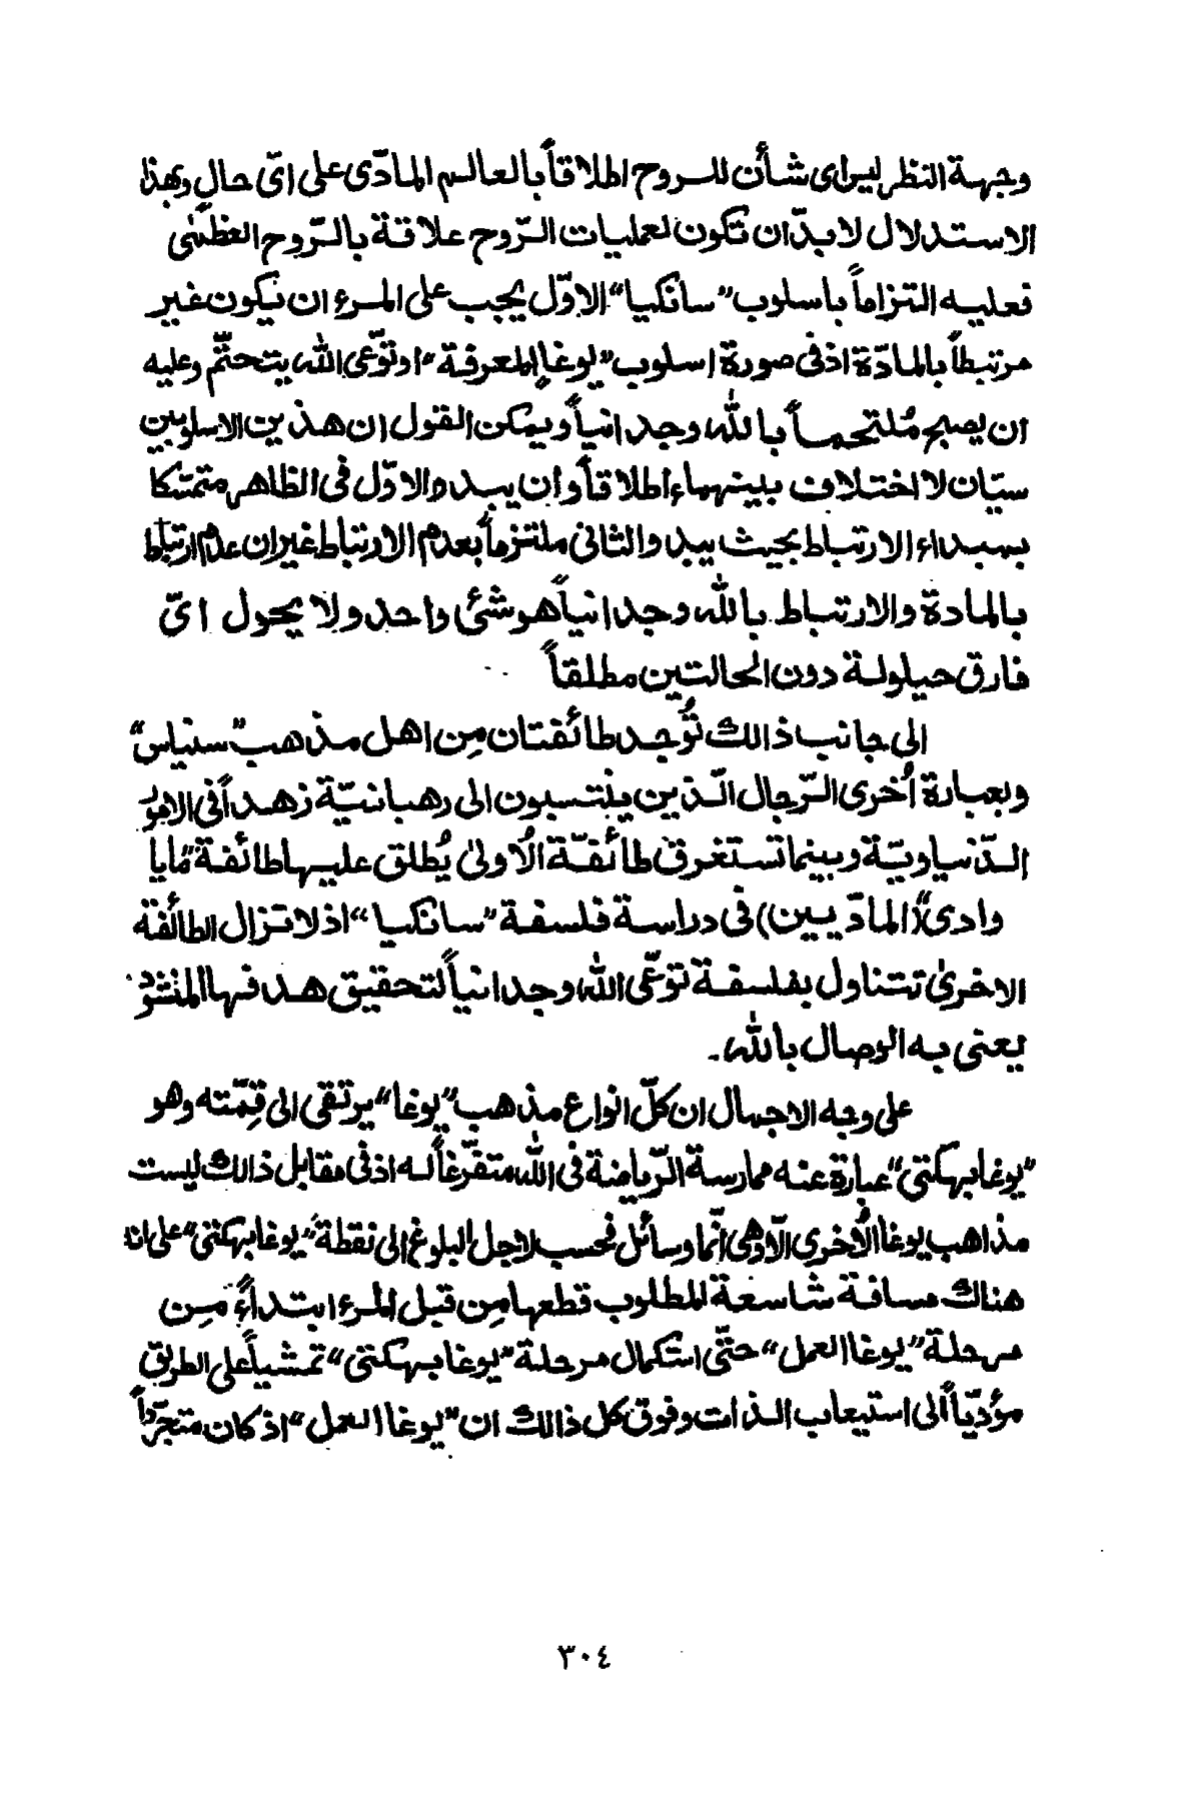 وجهة النظر ليس اى شأن للروح اطلاقاً بالعالم المادّى على اىّ حال وبهذا
الاستدلال لابدّ ان تكون لعمليات الرّوح علاقة بالرّوح العظمىٰ
فعليه التزاماً باسلوب ”سانكيا“ الاوّل يجب على المرء ان يكون غير
مرتبطاً بالمادّة اذ فى صورة اسلوب ”يوغا المعرفة“ او توّعى الله يتحتّم وعليه
ان يصبح مُلتحماً بالله وجدانياً ويمكن القول ان هذين الاسلوبين
سيّان لا اختلاف بينهماء اطلاقاً وان يبدو الاوّل فى الظاهر متمسّكا
بمبداء الارتباط بحيث يبدو الثانى ملتزماً بعدم الارتباط غير ان عدم ارتباط
بالمادة والارتباط بالله وجدانياً هو شئى واحد ولا يحول اىّ
فارق حيلولة دون الحالتين مطلقاً
الى جانب ذالك تُوجد طائفتان مِن اهل مذهب ”سنياس“
وبعبارة اُخرى الرّجال الّذين ينتسبون الى رهبانيّة زهداً فى الامور
الدّنياويّة وبينما تستغرق طائفّة الُاولىٰ يُطلق عليها طائفة ”مايا
وادى“ (المادّيين) فى دراسة فلسفة ”سانكيا“ اذ لا تزال الطائفة
الاخرىٰ تتناول بفلسفة توّعى الله وجدانياً لتحقيق هدفها المنشود
يعنى به الوصال بالله ۔
على وجه الاجمال ان كلّ انواع مذهب ”يوغا“ يرتقى الى قِمّته وهو
”يوغا بهكتى“ عبارة عنه ممارسة الرّياضة فى الله متفرّغاً له اذ فى مقابل ذالك ليست
مذاهب يوغا الُاخرى الّا وهى انّما وسائل فحسب لاجل البلوغ الى نقطة ”يوغا بهكتى“ على انه
هناك مسافة شاسعة للمطلوب قطعها مِن قبل المرء ابتداءً مِن
مرحلة ”يوغا العمل“ حتّى استكمال مرحلة ”يوغا بهكتى“ تمشياً على الطريق
مؤدّياً الى استيعاب الذات وفوق كل ذالك ان ”يوغا العمل“ اذ كان متجرّداً
٣٠٤